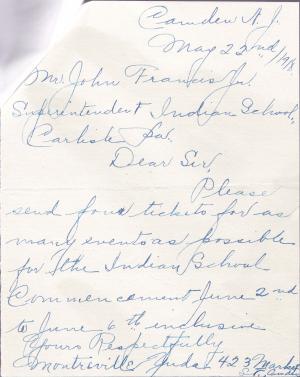 Camden N. J.
May 22nd/1918.
Mr. John Francis Jr.
Superintendent Indian School,
Carlisle Pa.
Dear Sir,
Please
send four tickets for as
many events as possible
for the Indian School
Commencement June 2nd
to June 6th inclusive
Yours Respectfully
Montreville Yuda 423 Market
St. Camden